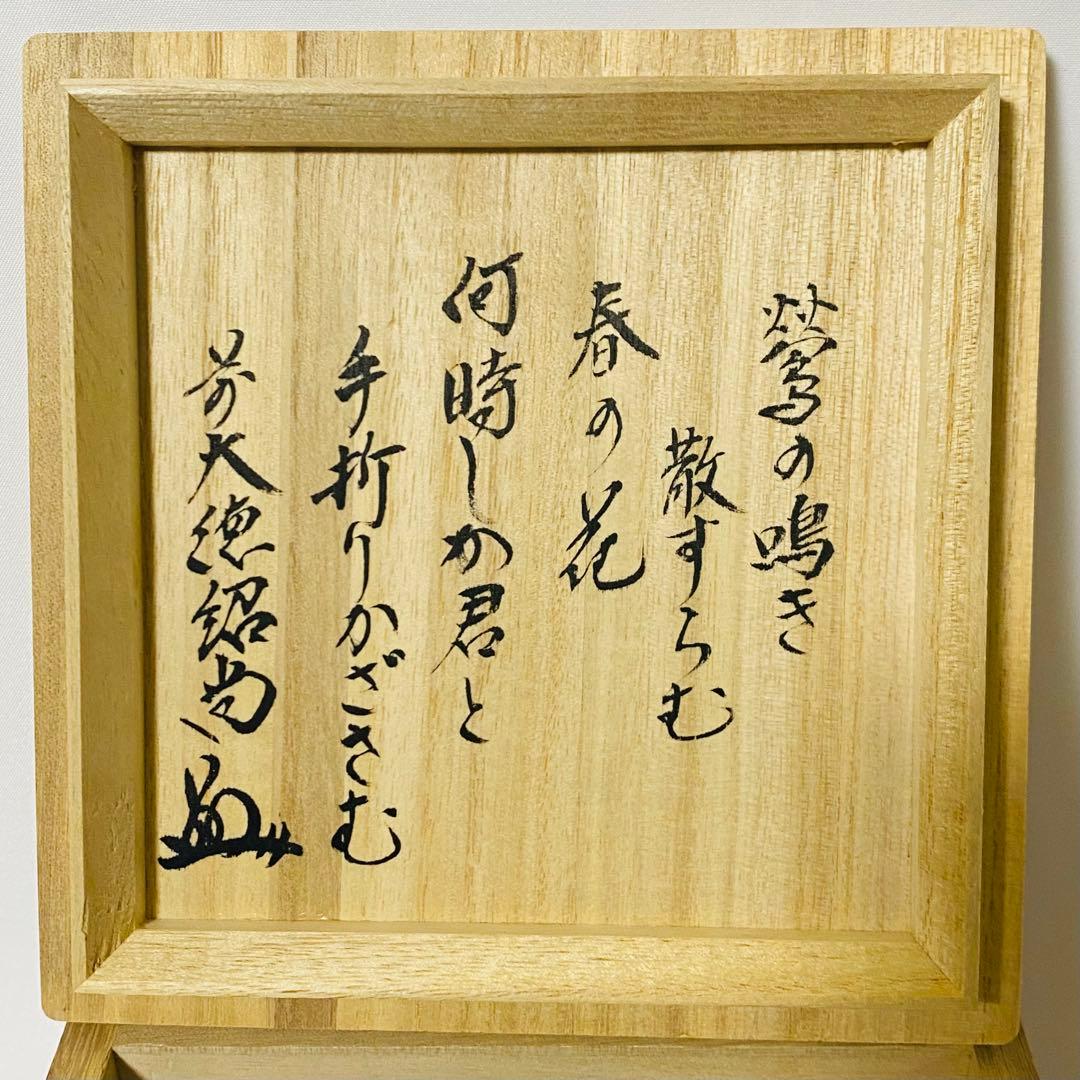 鶯の鳴き
散すらむ
春の花
何時しか君と
手折りかざさむ
前大徳紹尚